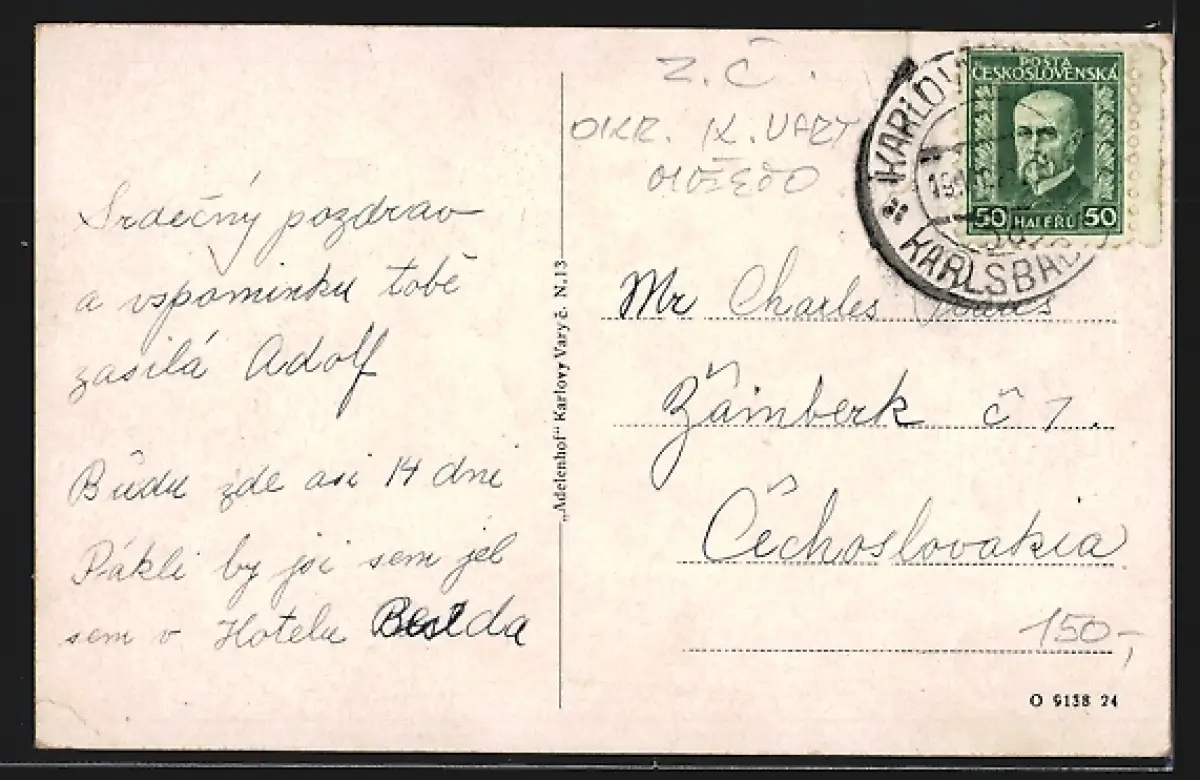 Srdečný pozdrav
a vspomínku tobě
zasílá Adolf
Budu zde asi 14 dni
Pákli by jsi sem jel
sem v Hotelu Beseda
„Adelenhof“ Karlovy Vary č. N. 13
Z. Č.
OKR. K. VARY
KARLOVY
KARLSBAD
POŠTA
ČESKOSLOVENSKÁ
50 HALÉŘŮ 50
Mr Charles
Žámberk č 1.
Čechoslovakia
150,-
O 9138 24